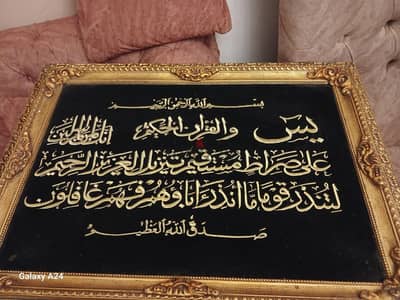 بسم الله الرحمن الرحيم
يس والقرآن الحكيم إنك لمن المرسلين
على صراط مستقيم تنزيل العزيز الرحيم
لتنذر قوما ما أنذر آباؤهم فهم غافلون
صدق الله العظيم
Galaxy A24